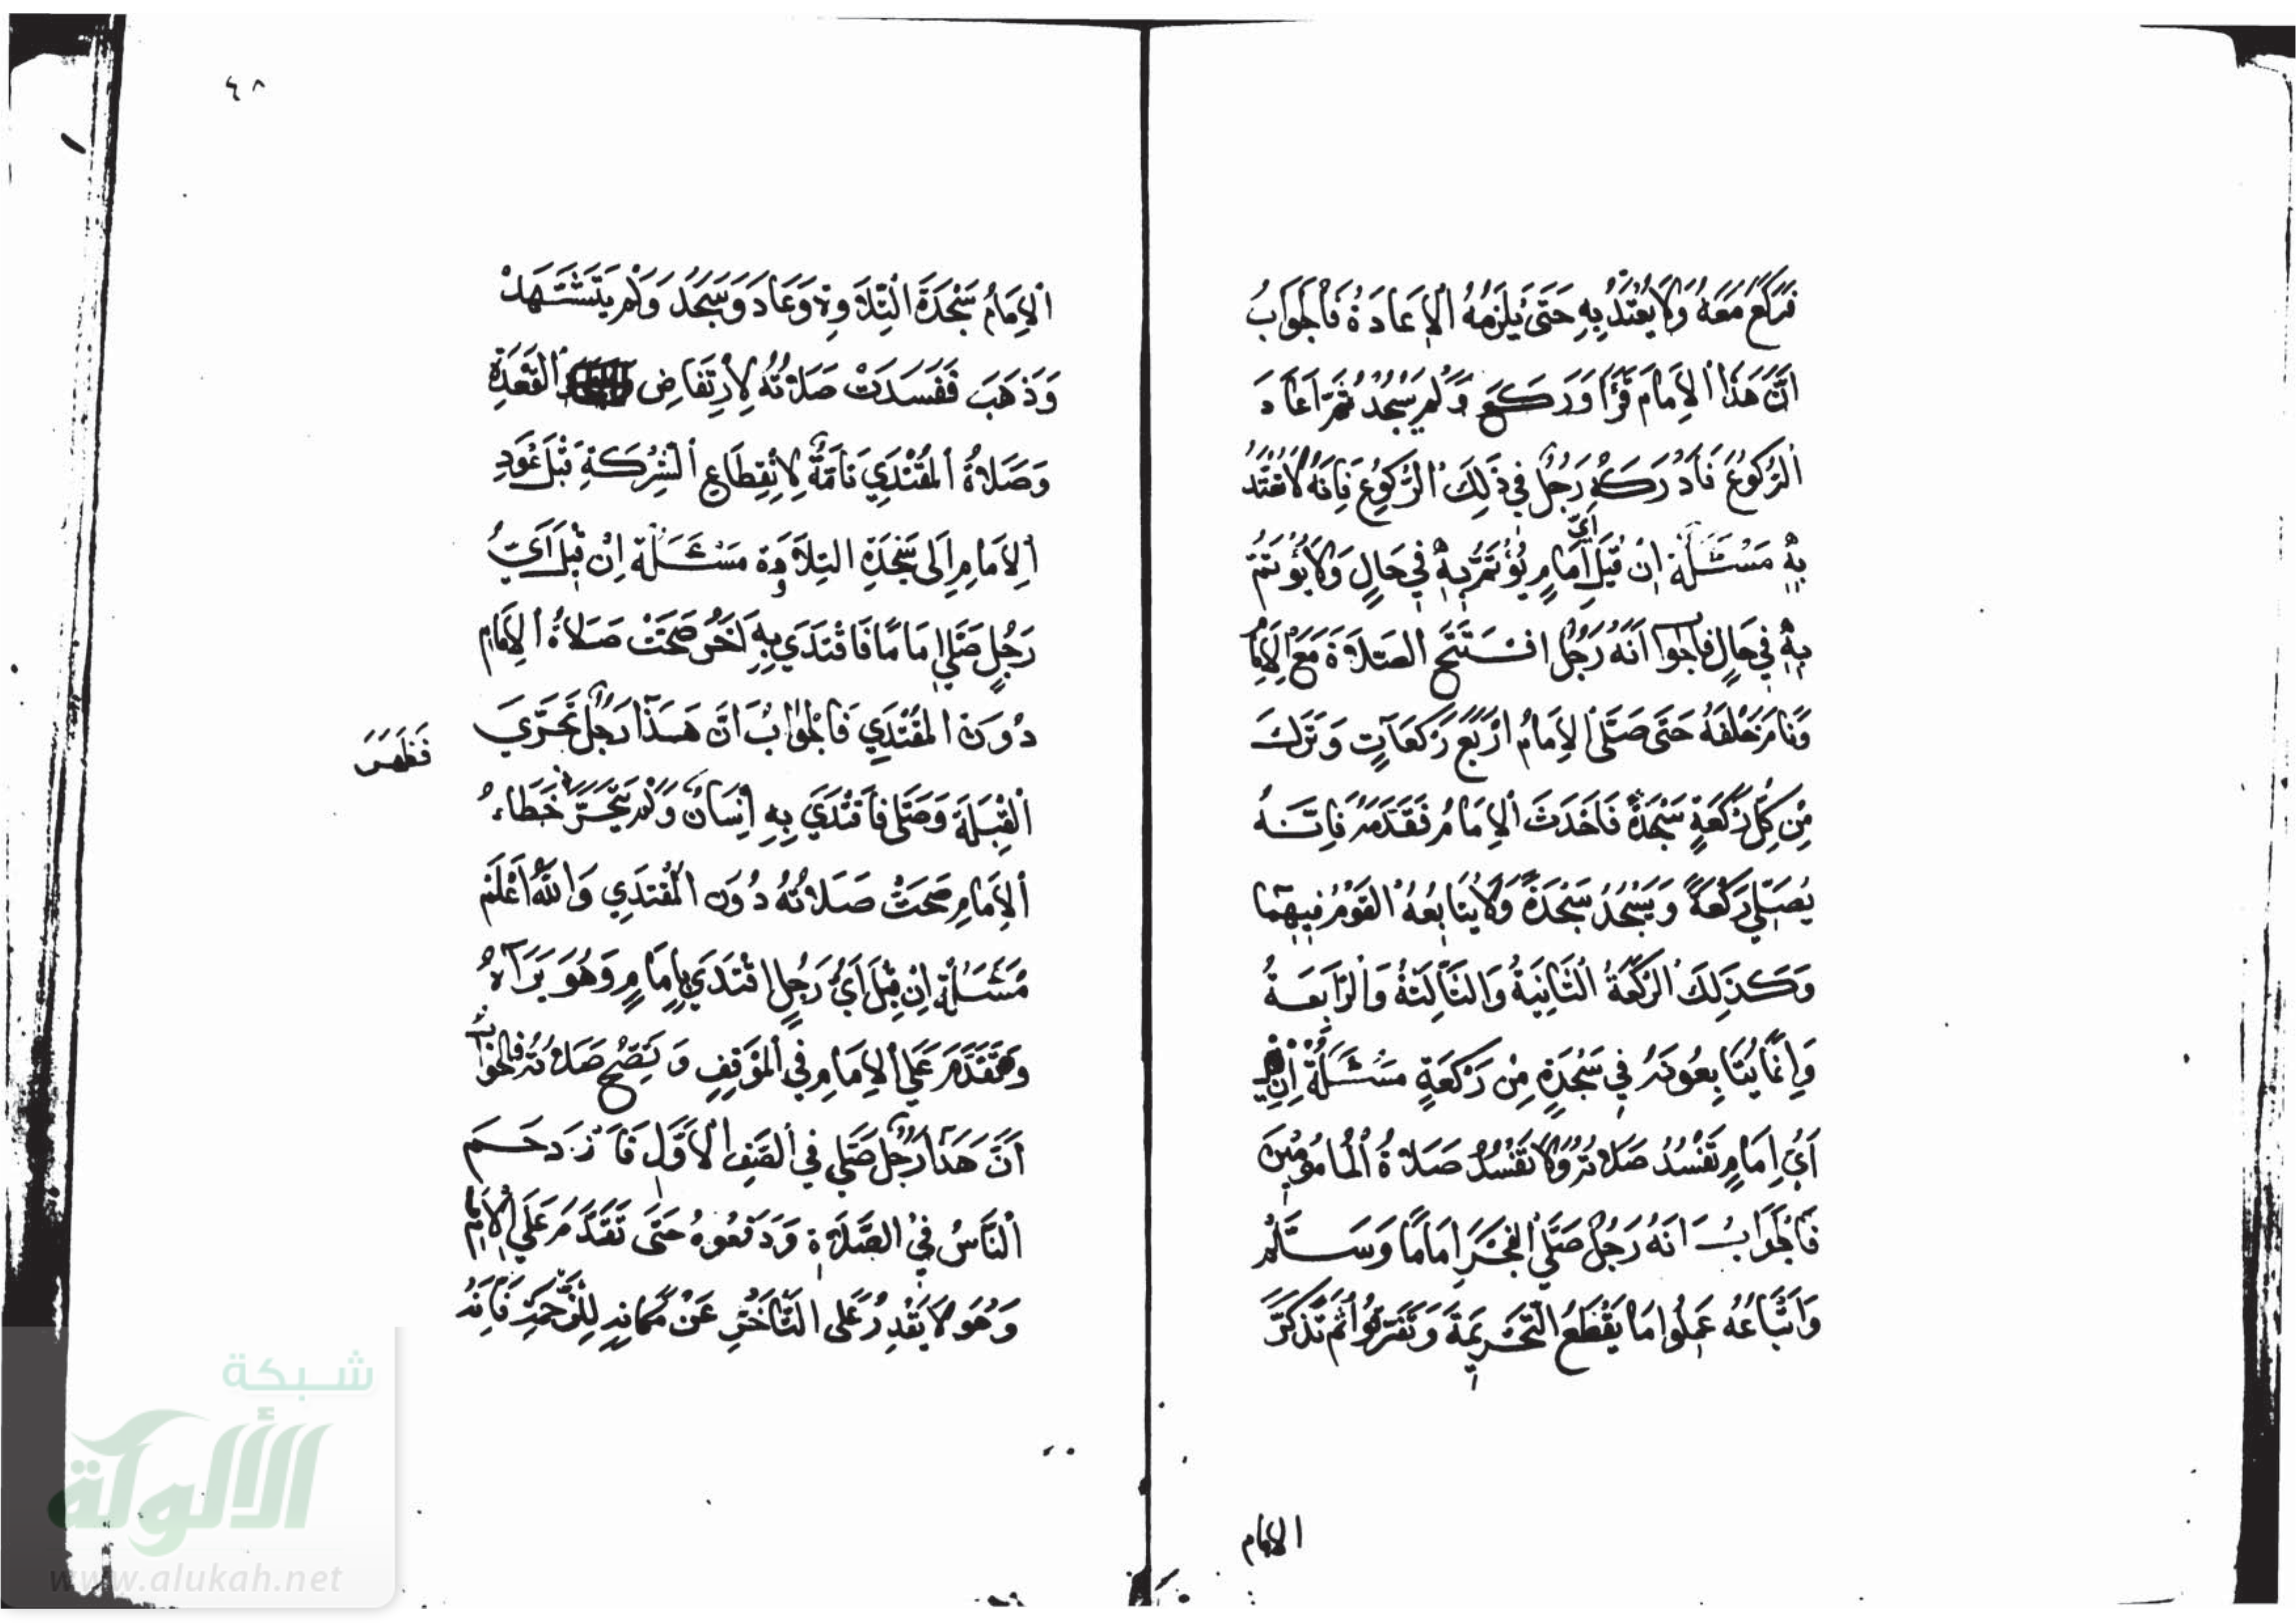 فَرَكَعَ مَعَهُ وَلَا يُعْتَدُّ بِهِ حَتَّى يَلْزَمُهُ الْإِعَادَةُ فَالْجَوَابُ
أَنَّ هَذَا الْإِمَامَ قَرَأَ وَرَكَعَ وَلَمْ يَسْجُدْ ثُمَّ اَعَادَ
الرُّكُوعَ فَادْرَكَهُ رَجُلٌ فِي ذَلِكَ الرُّكُوعِ فَإِنَّهُ لَا يَعْتَدُّ
بِهِ مَسْئَلَة إِنْ قِيلَ أَيُّ إِمَامٍ يُؤْتَمُّ بِهِ فِي حَالٍ وَلَا يُؤْتَمُّ
بِهِ فِي حَالٍ فالجوا أَنَّهُ رَجُلٌ افْتَتَحَ الصَّلَاةَ مَعَ الْإِمَامِ
وَنَامَ خَلْفَهُ حَتَّى صَلَّى الْإِمَامُ أَرْبَعَ رَكَعَاتٍ وَتَرَكَ
مِنْ كُلِّ رَكْعَةٍ سَجْدَةً فَاَحْدَثَ الْإِمَامُ فَقَدَّمَهُ فَإِنَّهُ
يُصَلِّي رَكْعَةً وَيَسْجُدُ سَجْدَةً وَلَا يُتَابِعُهُ الْقَوْمُ فِيهِمَا
وَكَذَلِكَ الرَّكْعَةُ الثَّانِيَةُ وَالثَّالِثَةُ وَالرَّابِعَةُ
وَإِنَّمَا يُتَابِعُونَهُ فِي سَجْدَةٍ مِنْ رَكْعَةٍ مَسْئَلَةٌ إِنْ قِيلَ
أَيُّ إِمَامٍ تَفْسُدُ صَلَاتُهُ وَلَا تَفْسُدُ صَلَاةُ الْمَامُومِينَ
فَالْجَوَابُ اَنَّهُ رَجُلٌ صَلَّى الْفَجْرَ إِمَامًا وَسَلَّمَ
وَاَتْبَاعُهُ عَمِلُوا مَا يَقْطَعُ التَّحْرِيمَةَ وَتَفَرَّقُوا ثُمَّ تَذَكَّرَ
الامام
٤٨
الْإِمَامُ سَجْدَةَ التِّلَاوةِ وَعَادَ وَسَجَدَ وَلَمْ يَتَشَهَّدْ
وَذَهَبَ فَفَسَدَتْ صَلَاتُهُ لِارْتِفَاضِ الْقَعْدَةِ
وَصَلَاةُ الْمُقْتَدِي تَامَّةٌ لِانْقِطَاعِ الشِّرْكَةِ قَبْلَ عَوْدِ
الْإِمَامِ إِلَى سَجْدَةِ التِلَاوَة مَسْئَلَة إِنْ قِيلَ أَيُّ
رَجُلٍ صَلَّى إِمَامًا فَاقْتَدَى بِهِ آخَرُ صَحَّتْ صَلَاةُ الْإِمَامِ
دُونَ الْمُقْتَدِي فَالْجَوَابُ اَنَّ هَذَا رَجُلٌ تَحَرَّى
الْقِبْلَةَ وَصَلَّى فَاقْتَدَى بِهِ إِنْسَانٌ وَلَمْ يَتَحَرَّ خَطَاءُ
فَظَهَرَ
الْإِمَامِ صَحَّتْ صَلَاتُهُ دُونَ الْمُقْتَدِي وَاللهُ اَعْلَمُ
مَسْئَلَة إِنْ قِيلَ أَيُّ رَجُلٍ اقْتَدَى بِإِمَامٍ وَهُوَ يَرَاهُ
وَتَقَدَّمَ عَلَى الْإِمَامِ فِي الْمَوْقِفِ وَتَصِحُّ صَلَاتُهُ فالجواب
أَنَّ هَذَا رَجُلٌ صَلَّى فِي الصَّفِ الْأَوَّلِ فَازْدَحَمَ
النَّاسُ فِي الصَّلَاةِ وَدَفَعُوهُ حَتَّى تَقَدَّمَ عَلَى الْإِمَامِ
وَهُوَ لَا يَقْدِرُ عَلَى التَّأَخُّرِ عَنْ مَكَانِهِ لِلزَّحْمَةِ فَإِنَّهُ
شبكة
الألوكة
www.alukah.net